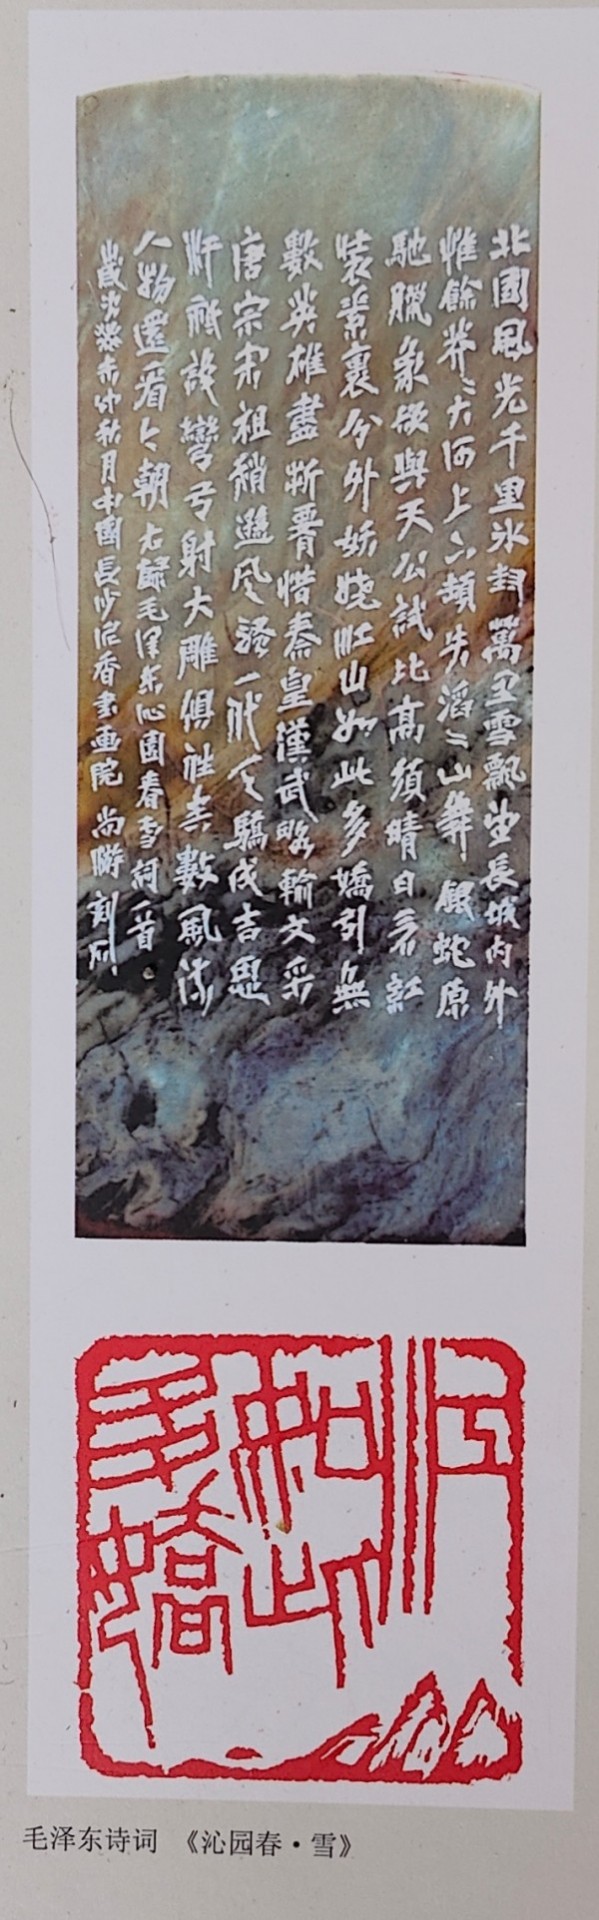 北國風光千里冰封萬里雪飄望長城内外
惟餘莽々大河上下頓失滔々山舞銀蛇原
馳臘象欲與天公試比高須晴日看紅
裝素裹分外妖嬈江山如此多嬌引無
數英雄盡折腰惜秦皇漢武略輸文采
唐宗宋祖稍遜风骚一代天驕成吉思
汗祇識彎弓射大雕俱往矣數風流
人物還看今朝 右録毛澤東沁園春雪詞一首
歲次癸未中秋月中國長沙香書画院 尚刻
江
如此
多嬌
毛泽东诗词 《沁园春·雪》